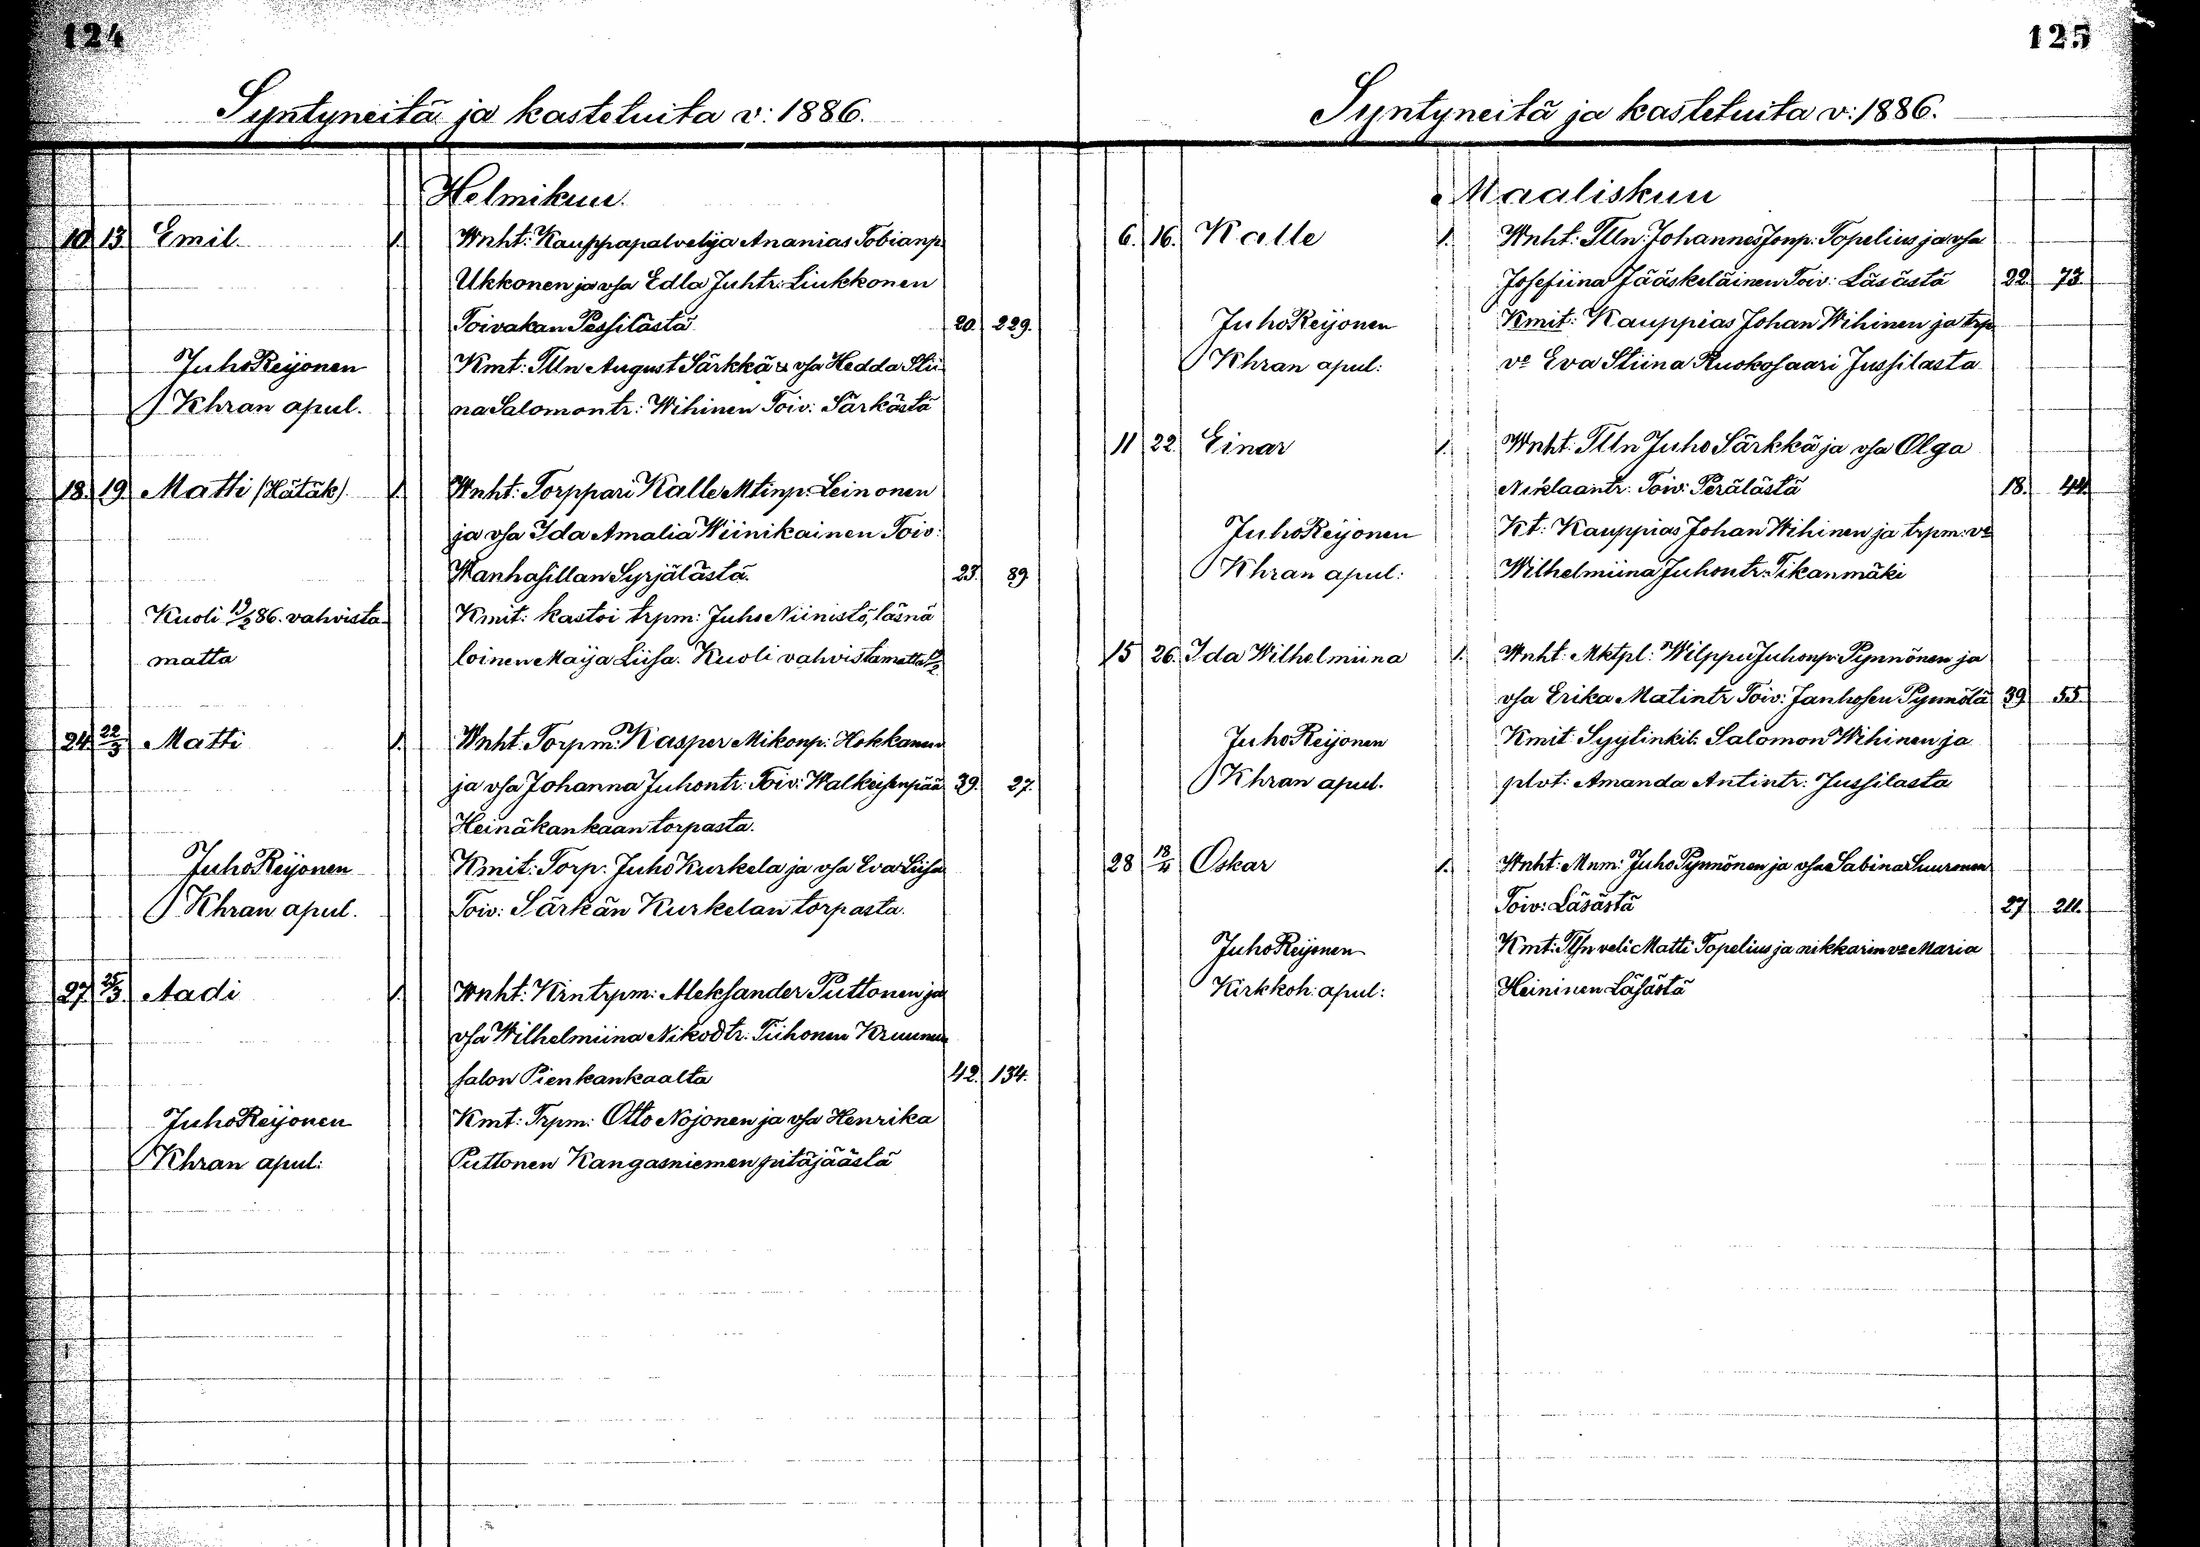 124
Syntyneitä ja kastetuita v: 1886.
Helmikuu.
10 13 Emil. 1. Wnht: Kauppapalvelija Ananias Tobianp
Ukkonen ja vsa Edla Juhtr: Liukkonen
Toivakan Pessilästä 20. 229.
Juho Reijonen Kmt: Tlln August Särkkä & vsa Hedda Stii
Khran apul. na Salomontr: Wihinen Toiv: Särkästä
18. 19 Matti (Hätäk) 1. Wnht: Torppari Kalle Mtinp: Leinonen
ja vsa Ida Amalia Wiinikainen Toiv:
Wanhasillan Syrjälästä. 23. 89.
Kuoli 19/2 86. vahvista- Kmit: kastoi trpm: Juho Niinistö, läsnä
matta loinen Maija Liisa. Kuoli vahvistamatta 19/2
24 22/3 Matti 1. Wnht. Torpm: Kasper Mikonp: Hokkanen
ja vsa Johanna Juhontr: Toiv: Walkeisenpää 39. 27.
Heinäkankaan torpasta.
Juho Reijonen Kmit: Torp: Juho Kurkela ja vsa Eva Liisa
Khran apul. Toiv: Särkän Kurkelan torpasta.
27 25/3 Aadi 1. Wnht: Krintrpm: Aleksander Puttonen ja
vsa Wilhelmiina Nikodtr: Tiihonen Kruunun
salon Pienkankaalta 42. 134.
Juho Reijonen Kmt: Trpm: Otto Nojonen ja vsa Henrika
Khran apul: Puttonen Kangasniemen pitäjäästä
125
Syntyneitä ja kastetuita v: 1886.
Maaliskuu
6. 16. Kalle 1. Wnht: Tlln: Johannes Jonp: Topelius ja vsa
Josefiina Jääskeläinen Toiv: Läsästä 22. 73.
Juho Reijonen Kmit: Kauppias Johan Wihinen ja trp
Khran apul: vo Eva Stiina Ruokosaari Jussilasta
11 22. Einar 1. Wnht: Tlln Juho Särkkä ja vsa Olga
Niklaantr: Toiv: Perälästä 18. 44.
Juho Reijonen Kt: Kauppias Johan Wihinen ja trpm: vo
Khran apul: Wilhelmiina Juhontr: Tikanmäki
15 26. Ida Wilhelmiina 1. Wnht: Mktpl: Wilppu Juhonp: Pynnönen ja
vsa Erika Matintr Toiv: Janhosen Pynnölä 39. 55.
Juho Reijonen Kmit: Syylinkit: Salomon Wihinen ja
Khran apul. plvt: Amanda Antintr: Jussilasta
28 18/4 Oskar 1. Wnht: Mnm: Juho Pynnönen ja vsa Sabina Suuronen
Toiv: Läsästä 27 211.
Juho Reijonen Kmt: Tlln veli Matti Topelius ja nikkarin vo Maria
Kirkkoh: apul: Heininen Läsästä